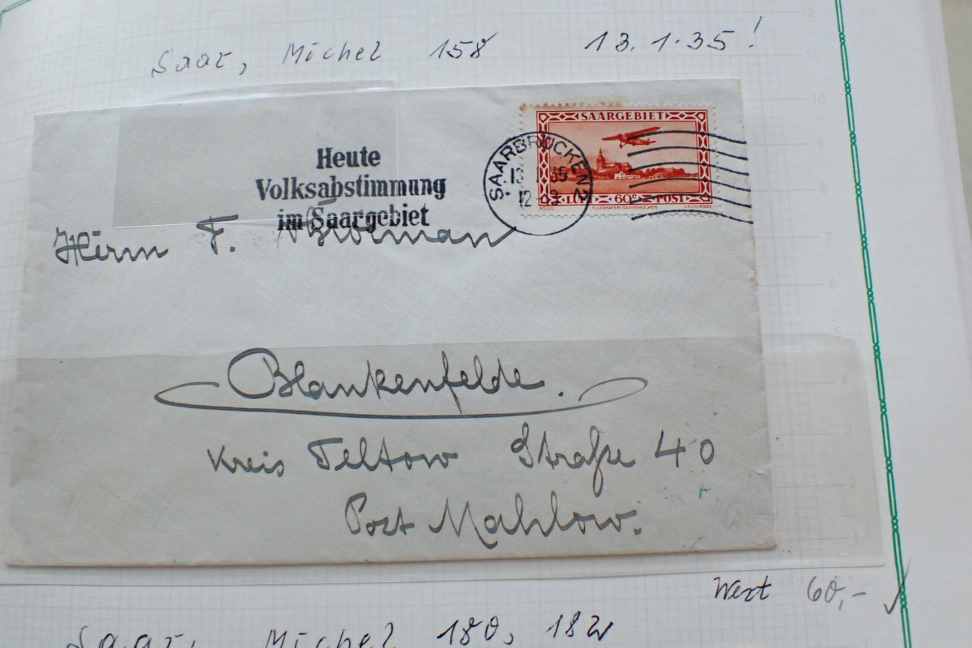 Saar, Michel 158 13.1.35!
Heute
Volksabstimmung
im Saargebiet
SAARBRÜCKEN 2
13 35
12
SAARGEBIET
60 POST
Herrn F.
Blankenfelde.
Kreis Teltow Straße 40
Post Mahlow.
Wert 60,-
Saar, Michel 180, 182